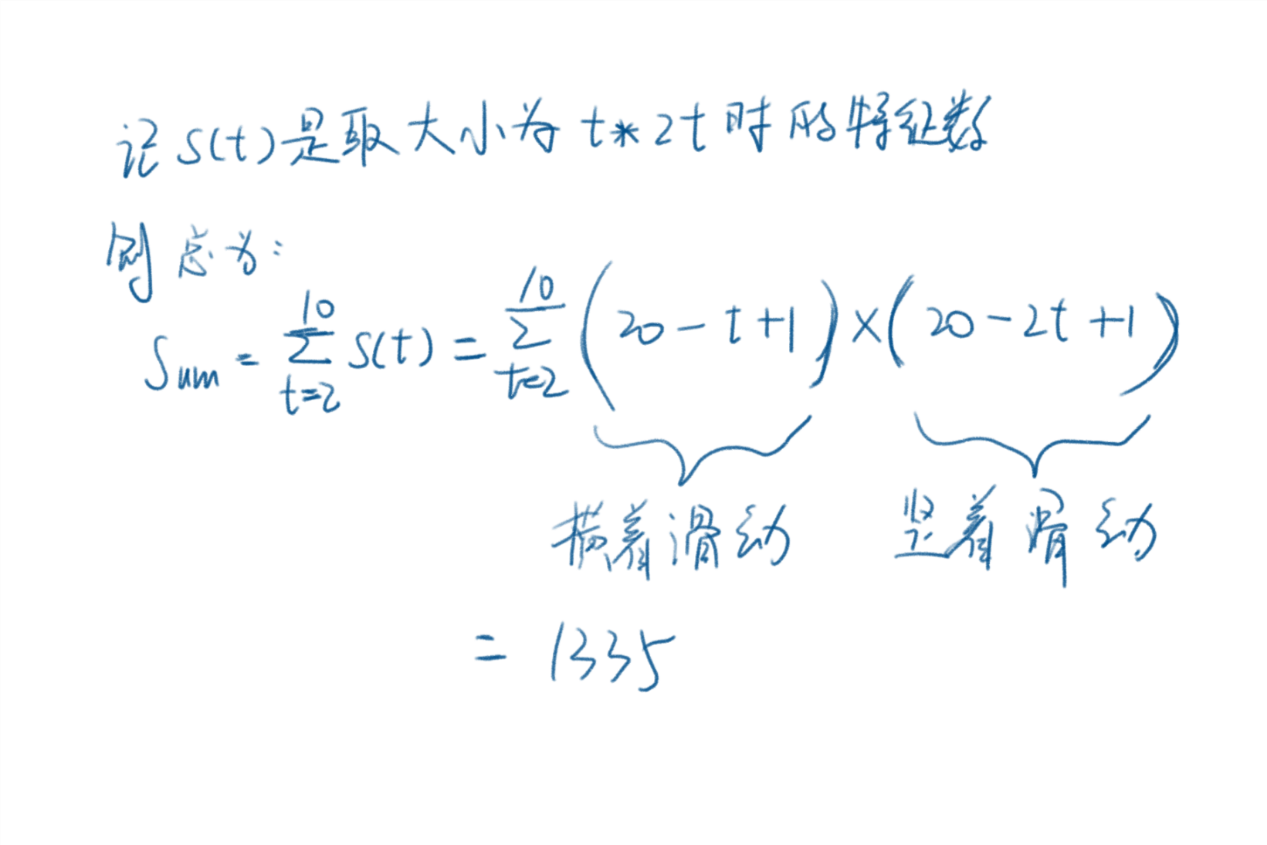 记S(t)是取大小为 t*2t 时的特征数
则总为:
Sum = \sum_{t=2}^{10} S(t) = \sum_{t=2}^{10} (20-t+1)×(20-2t+1)
横着滑动 竖着滑动
= 1335